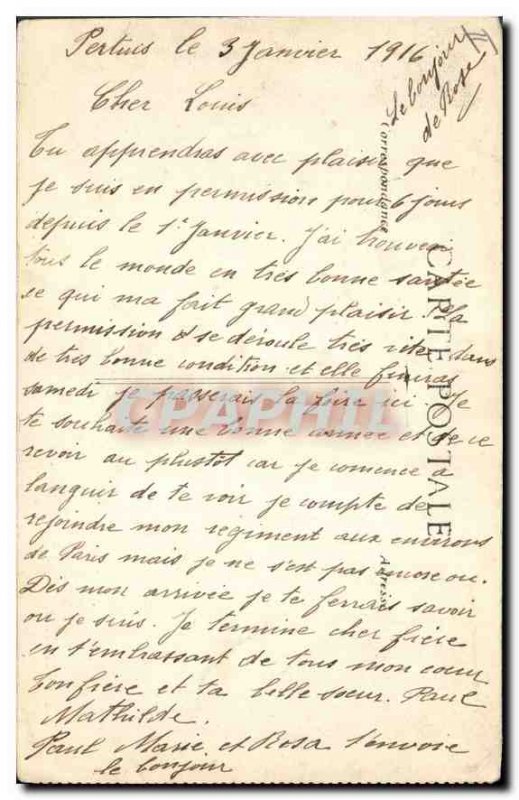 Pertuis le 3 Janvier 1916
Le bonjour
de Rose
Cher Louis
Tu apprendras avec plaisir que
je suis en permission pour 6 jours
depuis le 1r Janvier. J'ai trouver
tous le monde en très bonne santée
se qui ma fait grand plaisir. La
permission se déroule très vite dans
de très bonne condition et elle finiras
samedi je passerais la ici Je
te souhaite une bonne année et de ce
revoir au plustot car je comence à
languir de te voir je compte de
rejoindre mon regiment aux environs
de Paris mais je ne s'est pas encore ou.
Dès mon arrivée je te ferrais savoir
ou je suis. Je termine cher frère
en t'embrassant de tous mon coeur
ton frère et ta belle soeur. Paul
Mathilde.
Paul Marie et Rosa t'envoie
le bonjour
CARTE POSTALE
Correspondance
Adresse
CPAPHIL